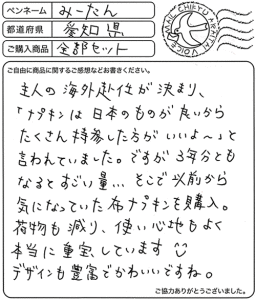 ペンネーム みーたん
都道府県 愛知県
ご購入商品 全部セット
MAIL CHIEKU ARATAI VOICE
ご自由に商品に関するご感想などお書きください。
主人の海外赴任が決まり、
「ナプキンは日本のものが良いから
たくさん持参した方がいいよ〜」と
言われていました。ですが3年分とも
なるとすごい量… そこで以前から
気になっていた布ナプキンを購入。
荷物も減り、使い心地もよく
本当に重宝しています
デザインも豊富でかわいいですね。
ご協力ありがとうございました。